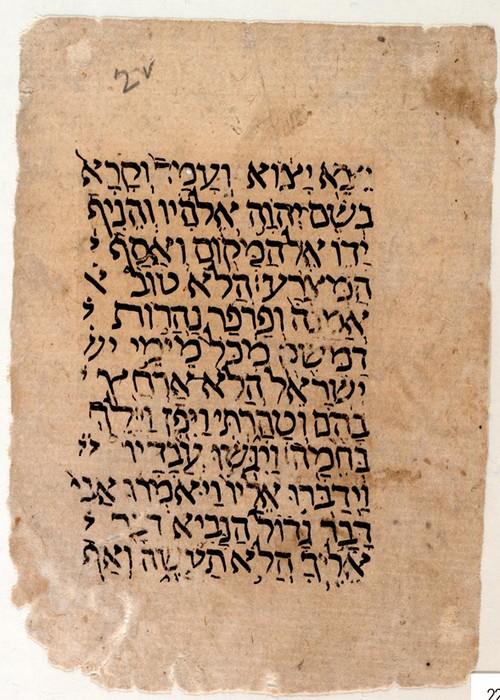 2v
יֵצֵא יָצוֹא וְעָמַד וְקָרָא
בְּשֵׁם יְהוָה אֱלֹהָיו וְהֵנִיף
יָדוֹ אֶל הַמָּקוֹם וְאָסַף י
הַמְּצֹרָע׃ הֲלֹא טוֹב א
אֲמָנָה וּפַרְפַּר נַהֲרוֹת י
דַמֶּשֶׂק מִכֹּל מֵימֵי יש
יִשְׂרָאֵל הֲלֹא אֶרְחַץ י
בָּהֶם וְטָהָרְתִּי וַיִּפֶן וַיֵּלֶךְ
בְּחֵמָה׃ וַיִּגְּשׁוּ עֲבָדָיו יי
וַיְדַבְּרוּ אֵלָיו וַיֹּאמְרוּ אָבִי
דָּבָר גָּדוֹל הַנָּבִיא דִּבֶּר י
אֵלֶיךָ הֲלֹא תַעֲשֶׂה וְאַף